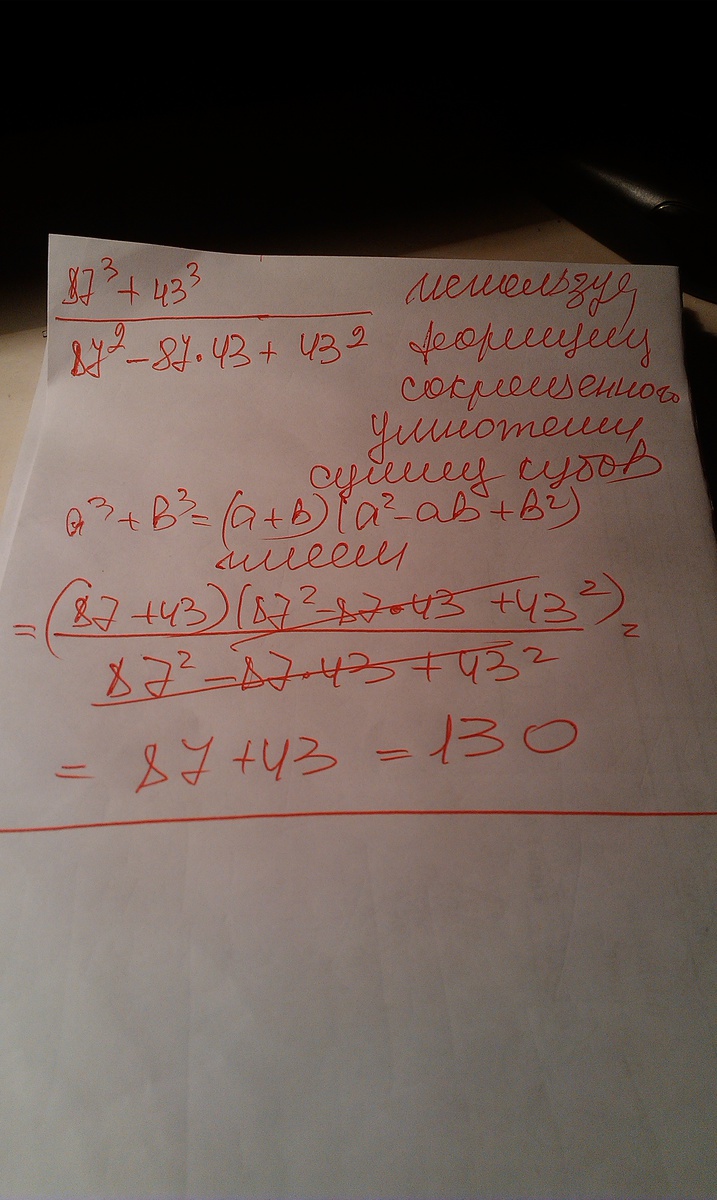 87³ + 43³
87² - 87·43 + 43²
используя
формулу
сокращенного
умножения
сумму кубов
a³ + b³ = (a + b)(a² - ab + b²)
имеем
= (87 + 43)(87² - 87·43 + 43²) =
87² - 87·43 + 43²
= 87 + 43 = 130